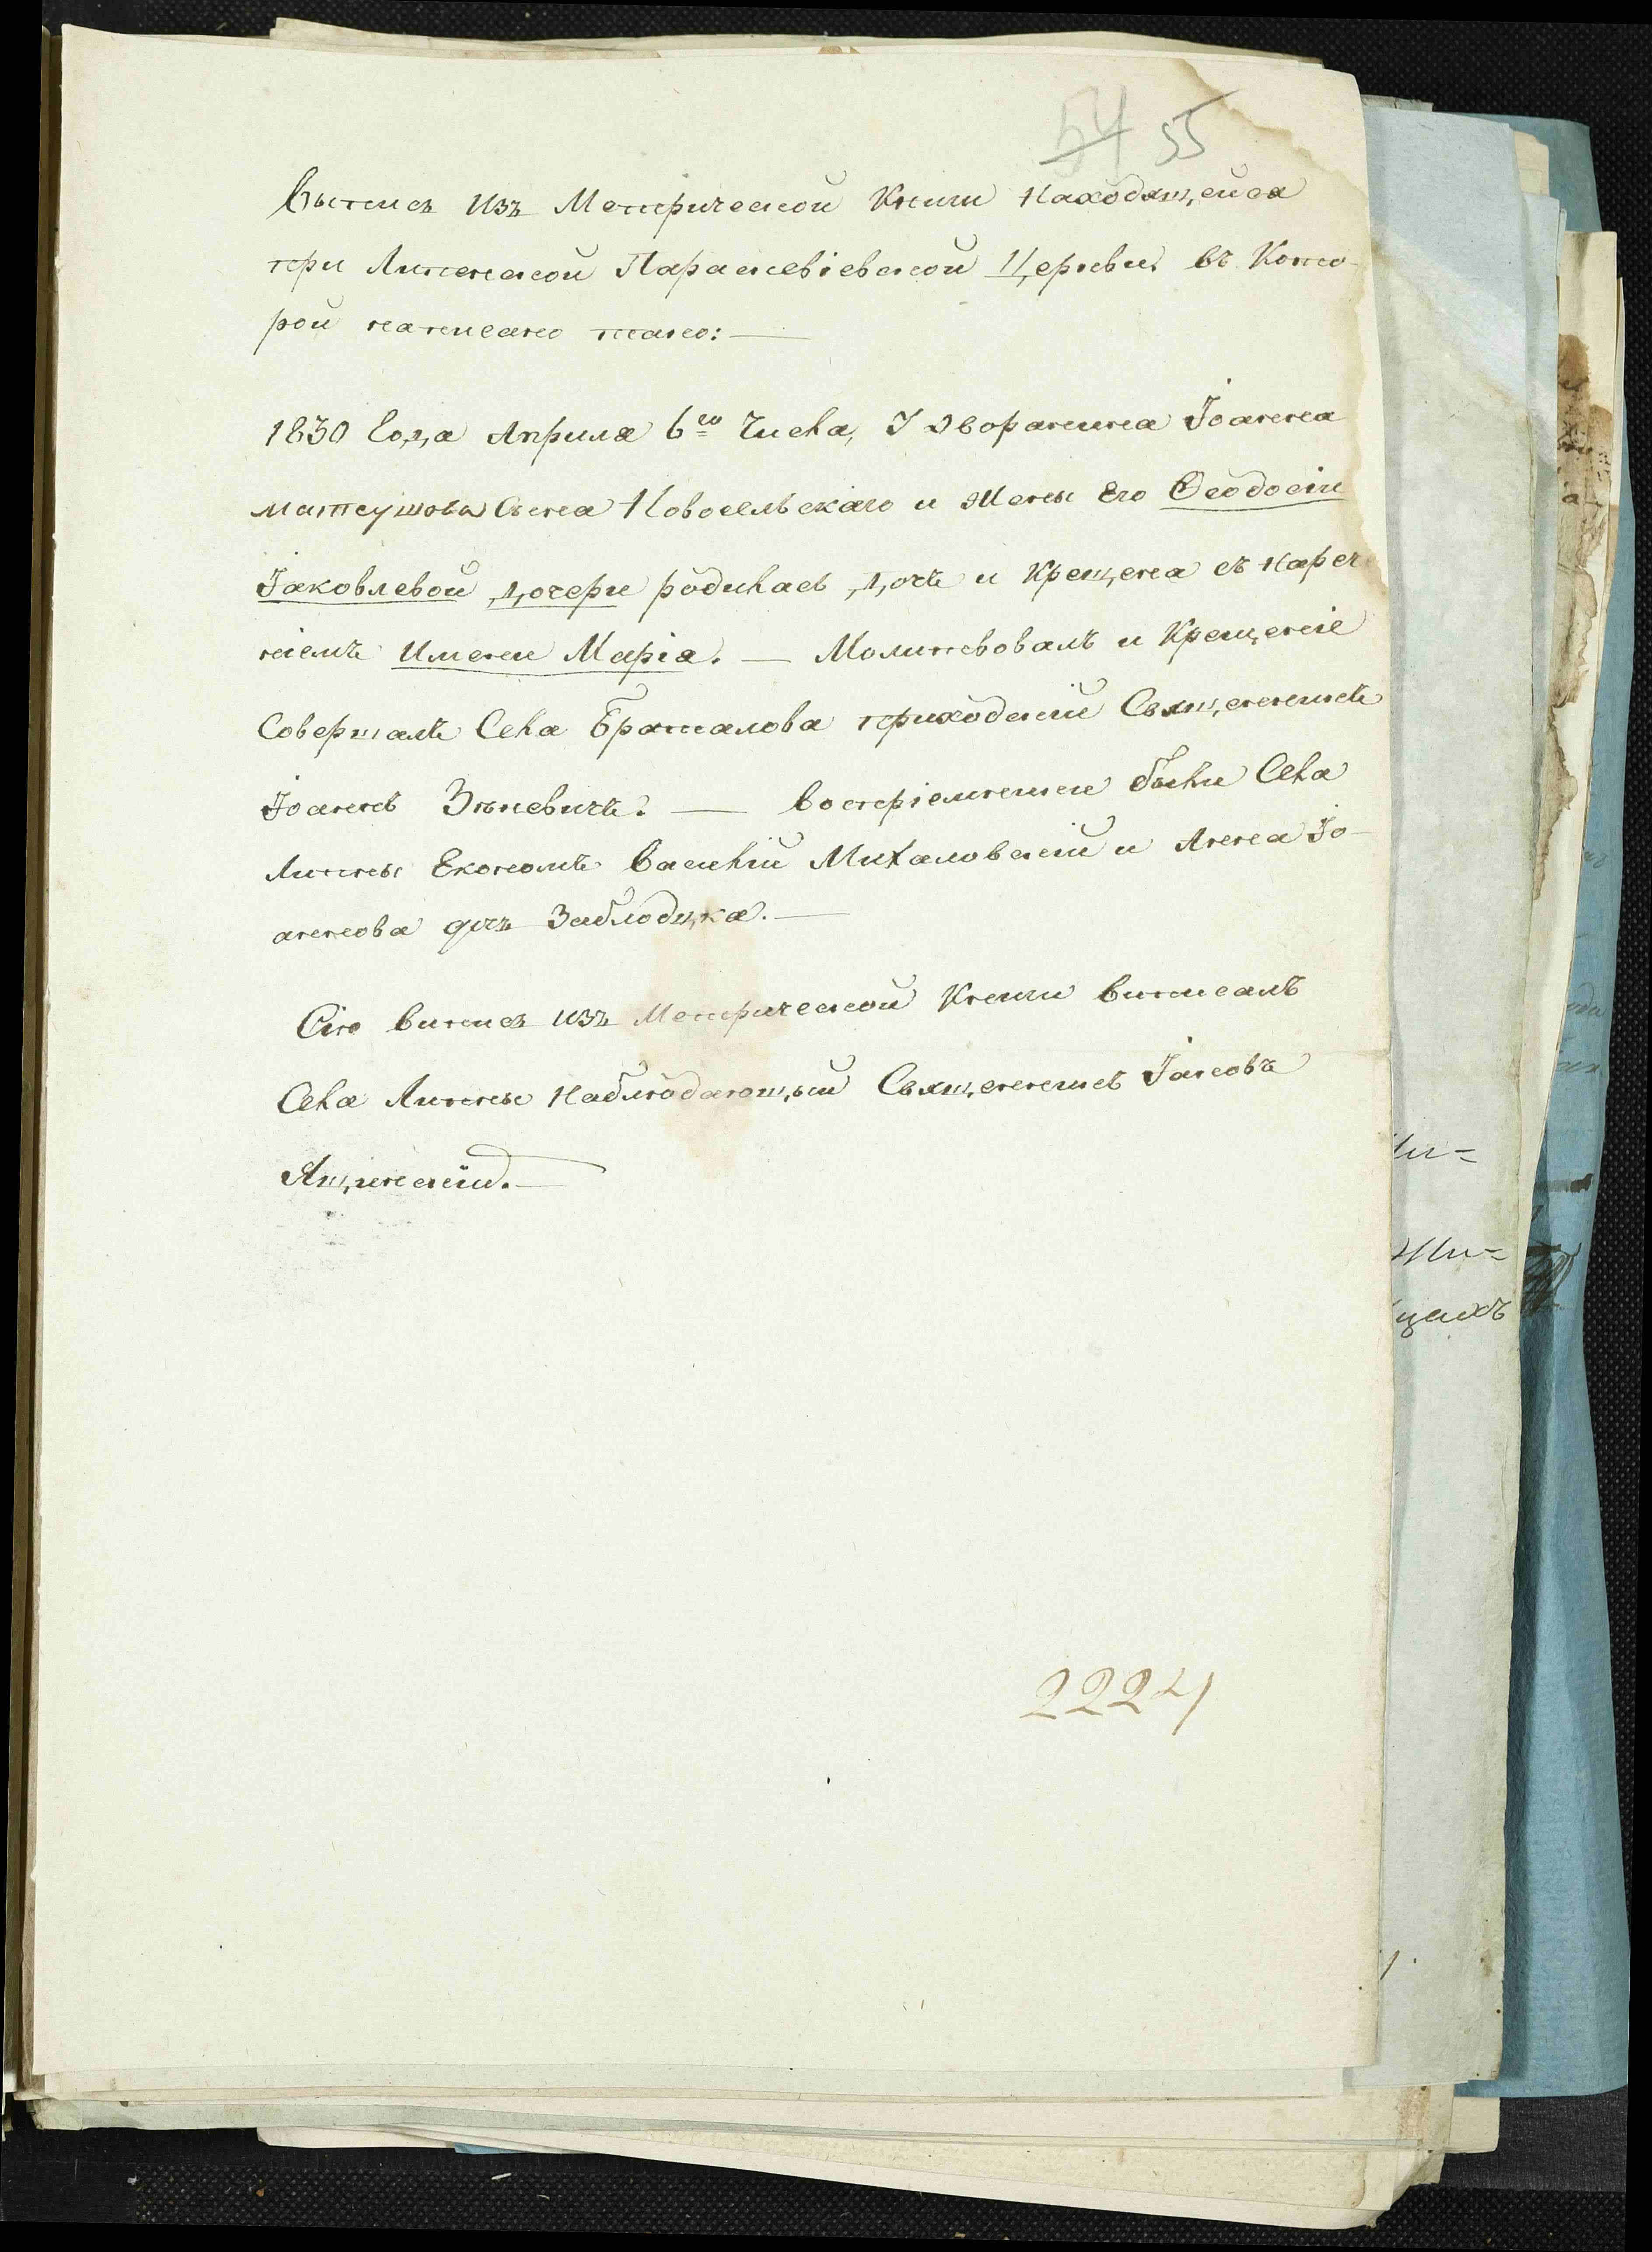 54 55
Выписъ изъ Метрической Книги Находящейся
при Липенской Параскевіевской Церкви въ Кото-
рой написано тако: —
1830 Года Априля 6го Числа, У Дворанина Іоанна
Матеушова Сына Новосельскаго и Жены Его Феодосіи
Іаковлевой Дочери родилась Дочь и Крещена съ Нареч
ніемъ Имени Марія. — Молитвовалъ и Крещеніе
Совершалъ Села Браталова приходскій Священникъ
Іоаннъ Зѣневичъ. — Воспріемники были Села
Липны Економъ Василій Михаловскій и Анна Іо-
аннова дчъ Заблоцка. —
Сію Виписъ изъ Метрической Книги виписалъ
Села Липны Наблюдающый Священникъ Іаковъ
Ящинскій. —
2224